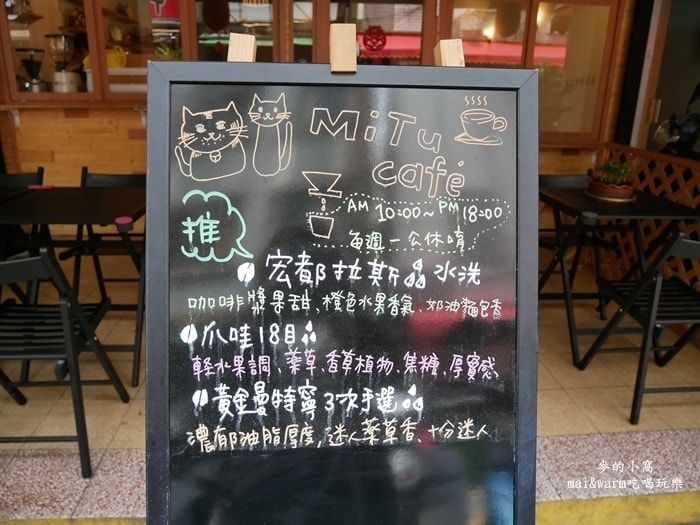 MiTu
café
AM 10:00~PM 18:00
每週一公休唷
推
宏都拉斯 水洗
咖啡漿果甜、橙色水果香氣、奶油麵包香
爪哇18目
軽水果調、藥草、香草植物、焦糖、厚實感
黃金曼特寧3次手選
濃郁油脂厚度，迷人藥草香、十分迷人
麥的小窩
mai&warm吃喝玩樂